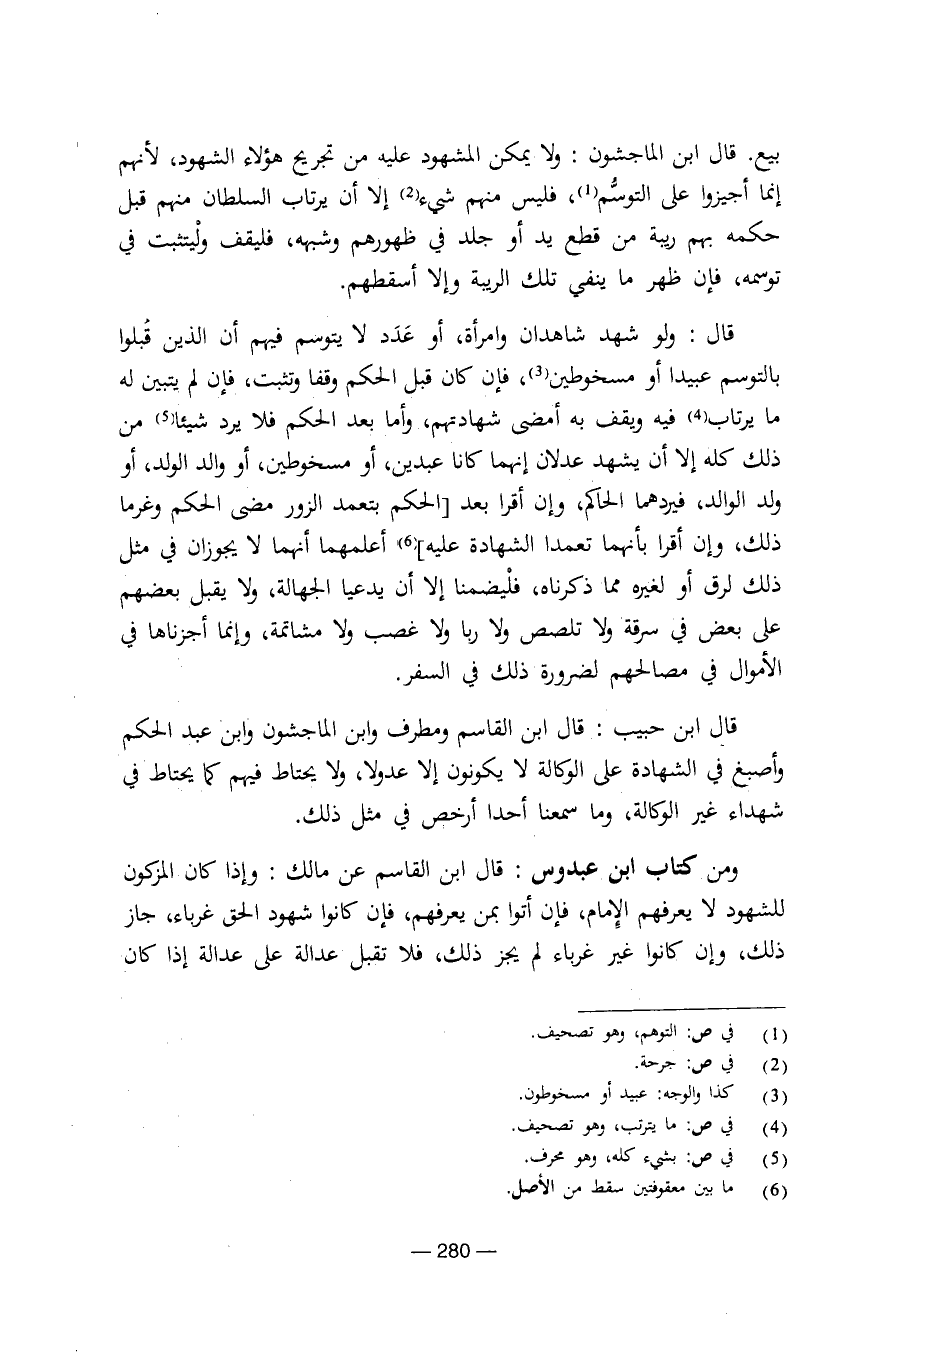 بيع. قال ابن الماجشون : ولا يمكن المشهود عليه من تجريح هؤلاء الشهود، لأنهم
إنما أجيزوا على التوسُّم(1)، فليس منهم شيء(2) إلا أن يرتاب السلطان منهم قبل
حكمه بهم ريبة من قطع يد أو جلد في ظهورهم وشبهه، فليقف ولْيتثبت في
توسمه، فإن ظهر ما ينفي تلك الريبة وإلا أسقطهم.
قال : ولو شهد شاهدان وامرأة، أو عَدَد لا يتوسم فيهم أن الذين قُبلوا
بالتوسم عبيدا أو مسخوطين(3)، فإن كان قبل الحكم وقفا وتثبت، فإن لم يتبين له
ما يرتاب(4) فيه ويقف به أمضى شهادتهم، وأما بعد الحكم فلا يرد شيئا(5) من
ذلك كله إلا أن يشهد عدلان إنهما كانا عبدين، أو مسخوطين، أو والد الولد، أو
ولد الوالد، فيردهما الحاكم، وإن أقرا بعد [الحكم بتعمد الزور مضى الحكم وغرما
ذلك، وإن أقرا بأنهما تعمدا الشهادة عليه](6) أعلمهما أنهما لا يجوزان في مثل
ذلك لرق أو لغيره مما ذكرناه، فلْيضمنا إلا أن يدعيا الجهالة، ولا يقبل بعضهم
على بعض في سرقة ولا تلصص ولا ربا ولا غصب ولا مشاتمة، وإنما أجزناها في
الأموال في مصالحهم لضرورة ذلك في السفر.
قال ابن حبيب : قال ابن القاسم ومطرف وابن الماجشون وابن عبد الحكم
وأصبغ في الشهادة على الوكالة لا يكونون إلا عدولا، ولا يحتاط فيهم كما يحتاط في
شهداء غير الوكالة، وما سمعنا أحدا أرخص في مثل ذلك.
ومن كتاب ابن عبدوس : قال ابن القاسم عن مالك : وإذا كان المزكون
للشهود لا يعرفهم الإمام، فإن أتوا بمن يعرفهم، فإن كانوا شهود الحق غرباء، جاز
ذلك، وإن كانوا غير غرباء لم يجز ذلك، فلا تقبل عدالة على عدالة إذا كان
(1) في ص: التوهم، وهو تصحيف.
(2) في ص: جرحة.
(3) كذا والوجه: عبيد أو مسخوطون.
(4) في ص: ما يترتب، وهو تصحيف.
(5) في ص: بشيء كله، وهو محرف.
(6) ما بين معقوفتين سقط من الأصل.
— 280 —